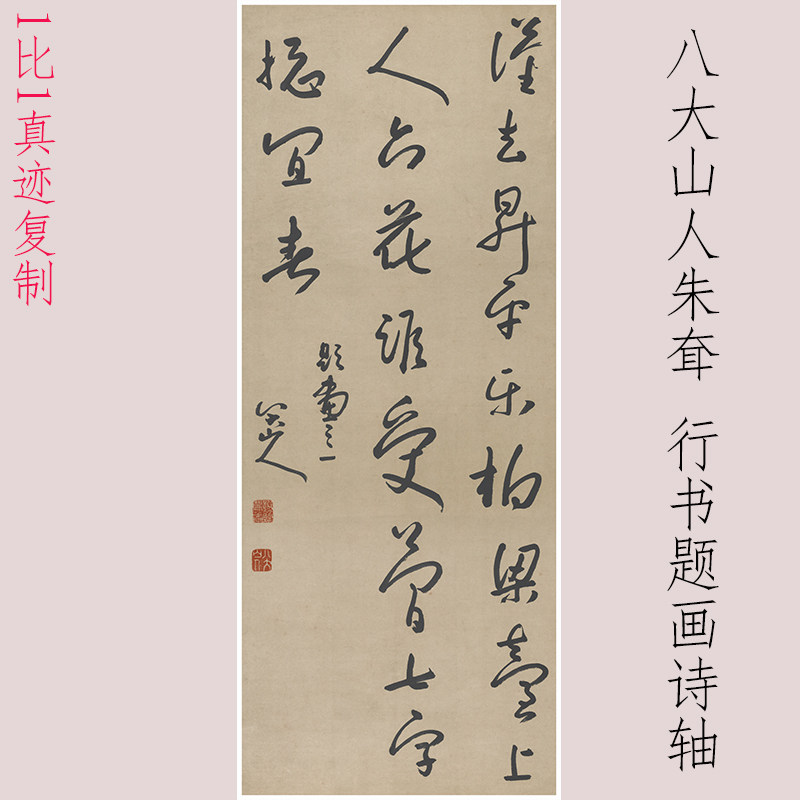 八大山人朱耷 行书题画诗轴
去昇平乐柏梁臺上
人六花受七字
總宜春
題畫之一
八大山人
1比1真迹复制